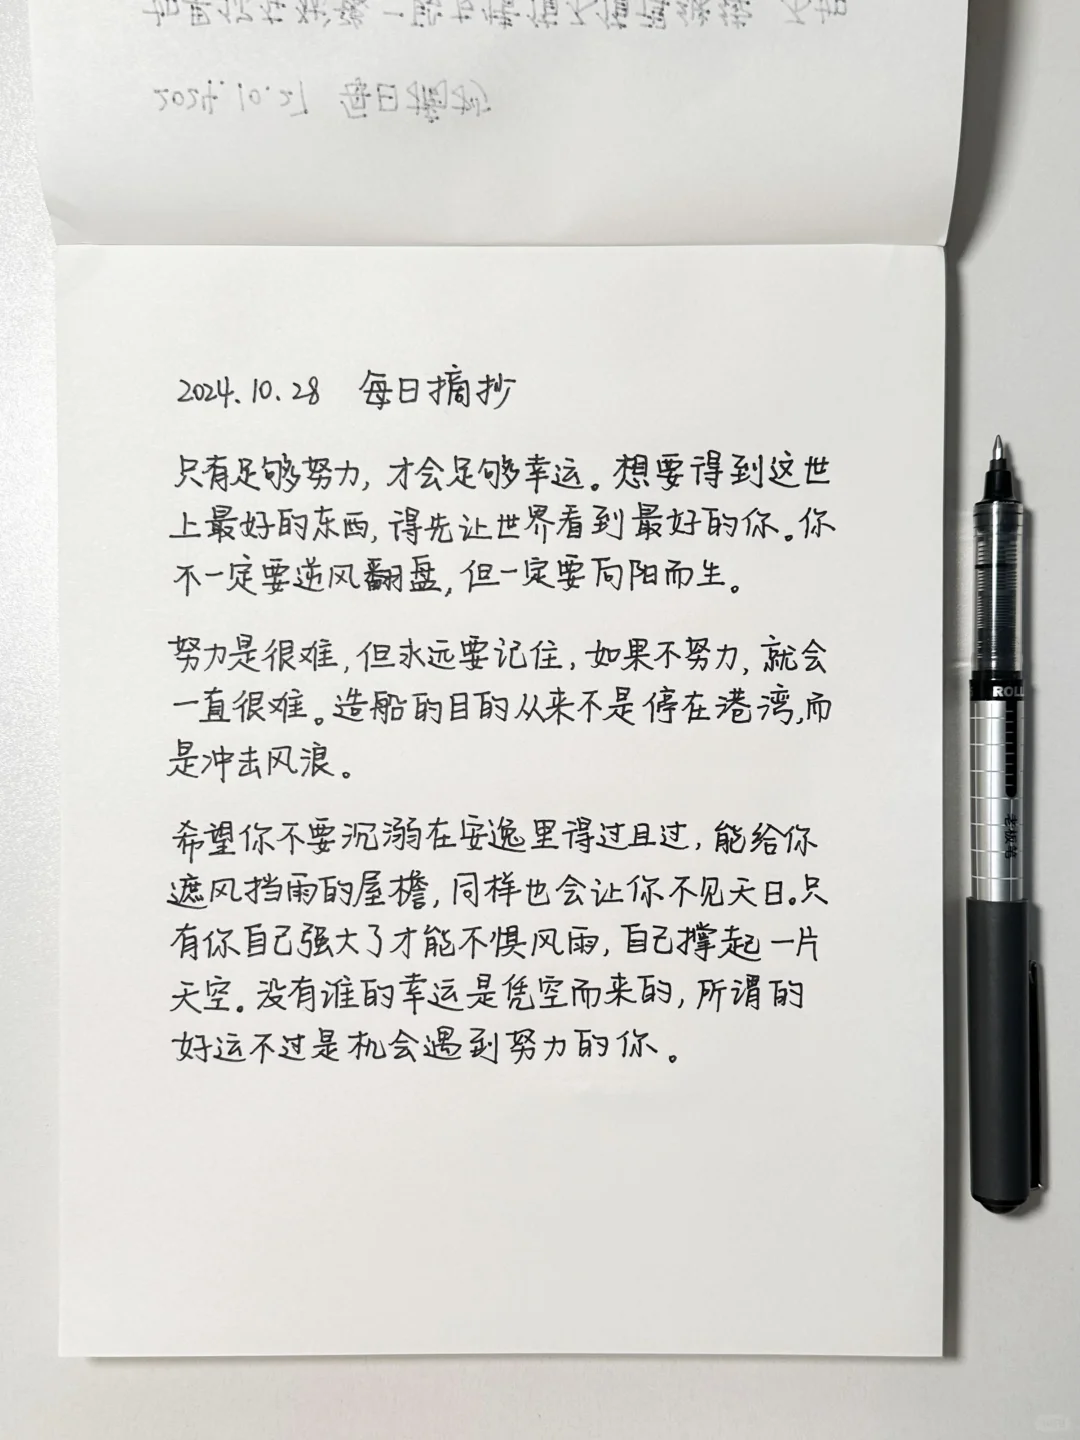 2024.10.27 每日摘抄
2024.10.28 每日摘抄
只有足够努力，才会足够幸运。想要得到这世
上最好的东西，得先让世界看到最好的你。你
不一定要逆风翻盘，但一定要向阳而生。
努力是很难，但永远要记住，如果不努力，就会
一直很难。造船的目的从来不是停在港湾，而
是冲击风浪。
希望你不要沉溺在安逸里得过且过，能给你
遮风挡雨的屋檐，同样也会让你不见天日。只
有你自己强大了才能不惧风雨，自己撑起一片
天空。没有谁的幸运是凭空而来的，所谓的
好运不过是机会遇到努力的你。
ROLL
老板笔